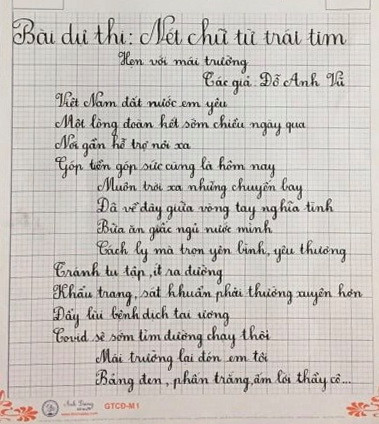 Bài dự thi: Nét chữ từ trái tim
Hẹn với mái trường
Tác giả Đỗ Anh Vũ
Việt Nam đất nước em yêu
Một lòng đoàn kết sớm chiều ngày qua
Nơi gần hỗ trợ nơi xa
Góp tiền góp sức cũng là hôm nay
Muôn trời xa những chuyến bay
Đã về đây giữa vòng tay nghĩa tình
Bữa ăn giấc ngủ nước mình
Cách ly mà trọn yên bình, yêu thương
Tránh tụ tập, ít ra đường
Khẩu trang, sát khuẩn phải thường xuyên hơn
Đẩy lùi bệnh dịch tai ương
Covid sẽ sớm tìm đường chạy thôi
Mái trường lại đón em tới
Bảng đen, phấn trắng, ấm lời thầy cô...
GTCD-M1